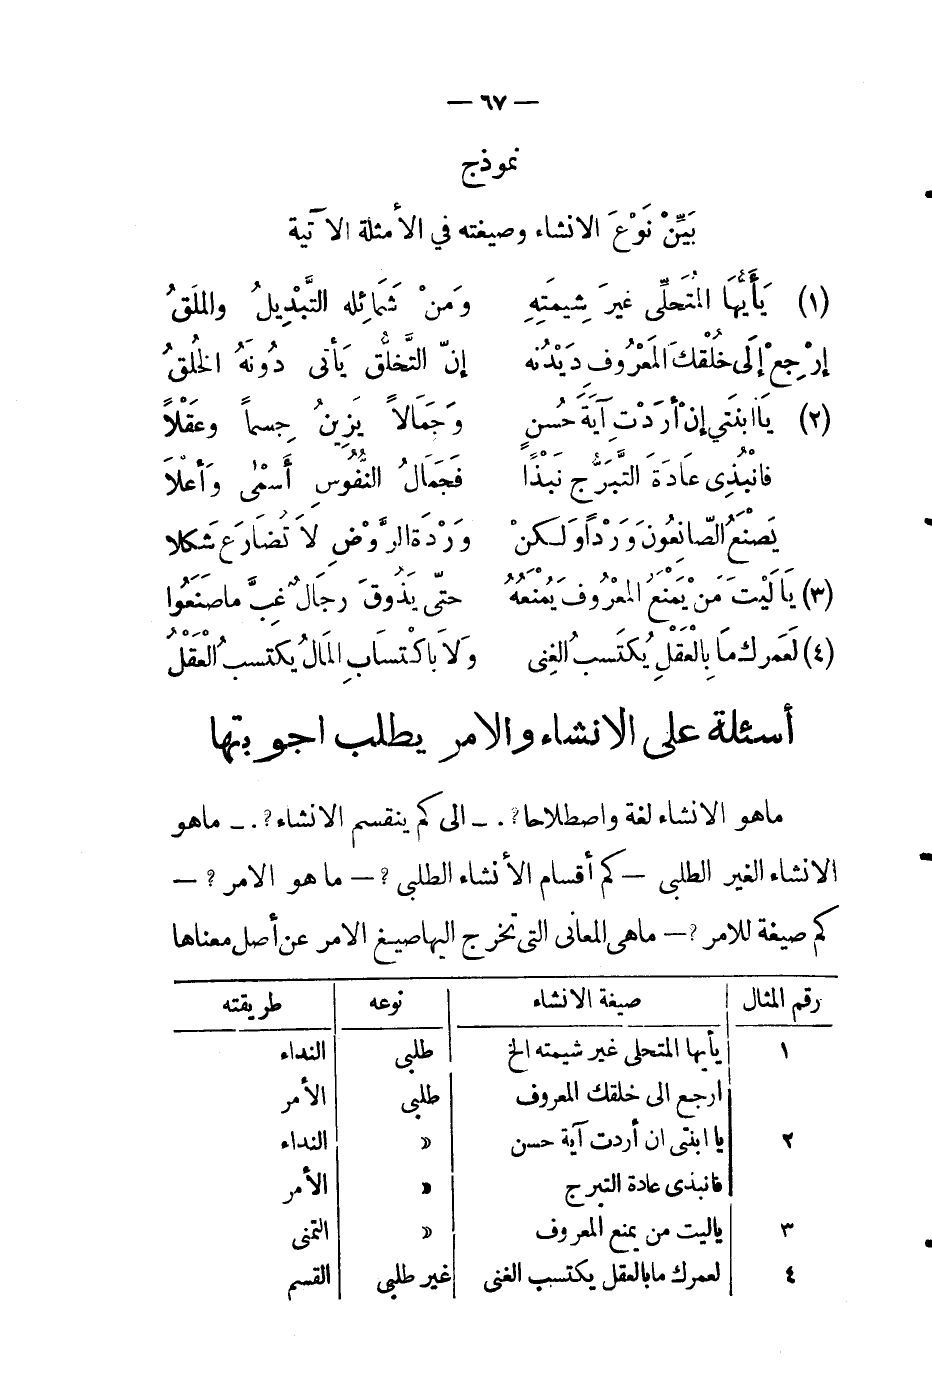 — ٦٧ —
نموذج
بَيِّنْ نَوْعَ الانشاء وصيغته في الأمثلة الآتية
(١) يَأَيُّهَا المُتَحَلِّى غيرَ شِيمَتِهِ وَمَنْ شَمَائِله التَّبْدِيلُ والملَقُ
إرْجِعْ إلَى خُلْقكَ المَعْرُوفِ دَيْدُنُه إنّ التَّخلُّق يَأتى دُونَهُ الخلُقُ
(٢) يَا ابنَتي إنْ أرَدْتِ آيَةَ حُسنٍ وَجَمَالاً يَزِينُ جِسماً وعَقْلاً
فانْبُذِى عَادَةَ التَّبَرُّجِ نَبْذًا فَجَمَالُ النُّفُوسِ أَسْمْى وَأعْلاَ
يَصْنَعُ الصّانِعُونَ وَرْداً وَلَكنْ وَرْدَةَ الرَّوْضِ لاَ تُضَارَع شَكلا
(٣) يَا لَيْتَ مَنْ يَمْنَعُ المعْرُوفَ يَمْنَعُهُ حتّى يَذُوقَ رِجَالٌ غِبَّ ماصَنَعُوا
(٤) لَعَمرك مَا بِالْعَقْلِ يُكتَسبُ الغِنى وَلاَ باكْتسَابِ المَالُ يكتسبُ الْعَقْلُ
أسئلة على الانشاء والامر يطلب اجوبتها
ماهو الانشاء لغة واصطلاحا؟. — الى كم ينقسم الانشاء؟. — ماهو
الانشاء الغير الطلبى — كم أقسام الأنشاء الطلبى؟ — ما هو الامر؟ —
كم صيغة للامر؟ — ماهى المعانى التى تخرج اليها صيغ الامر عن أصل معناها
رقم المثال | صيغة الانشاء | نوعه | طريقته
١ | يأيها المتحلى غير شيمته الخ | طلبى | النداء
ارجع الى خلقك المعروف | طلبى | الأمر
٢ | يا ابنتى ان أردت آية حسن | « | النداء
فانبذى عادة التبرج | « | الأمر
٣ | ياليت من يمنع المعروف | « | التمنى
٤ | لعمرك مابالعقل يكتسب الغنى | غير طلبى | القسم